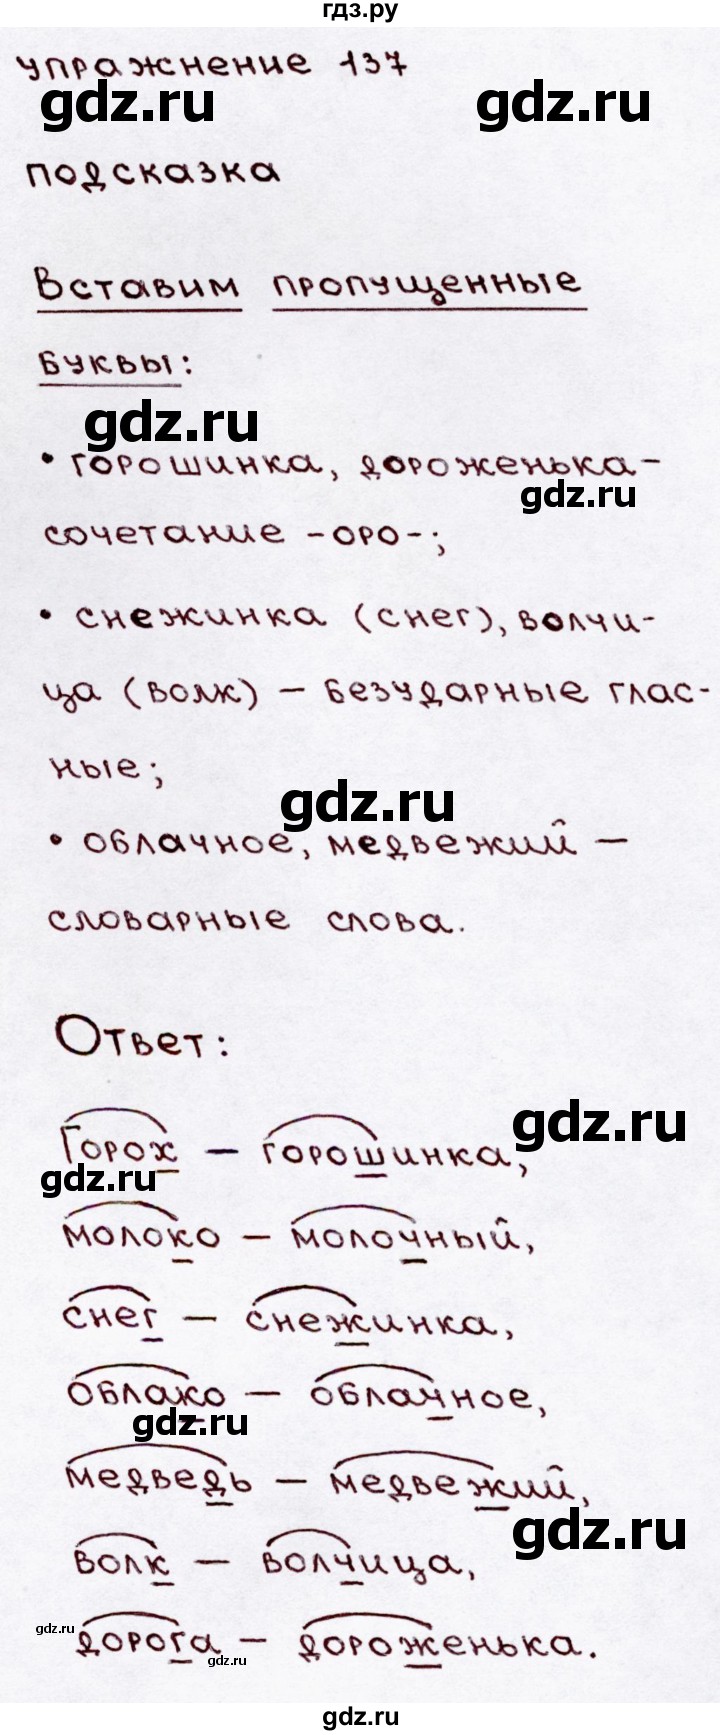 гдз.ру
упражнение 137
gdz.ru gdz.ru
подсказка
Вставим пропущенные
буквы:
gdz.ru
• горошинка, дороженька-
gdz.ru
сочетание -оро-;
• снежинка (снег), волчи-
ца (волк) - безударные глас-
ные;
gdz.ru
• облачное, медвежий -
словарные слова.
Ответ:
gdz.ru
Горох - горошинка,
gdz.ru
молоко - молочный,
снег - снежинка,
облако - облачное,
gdz.ru
медведь - медвежий,
gdz.ru
волк - волчица,
gdz.ru
дорога - дороженька.
gdz.ru
gdz.ru